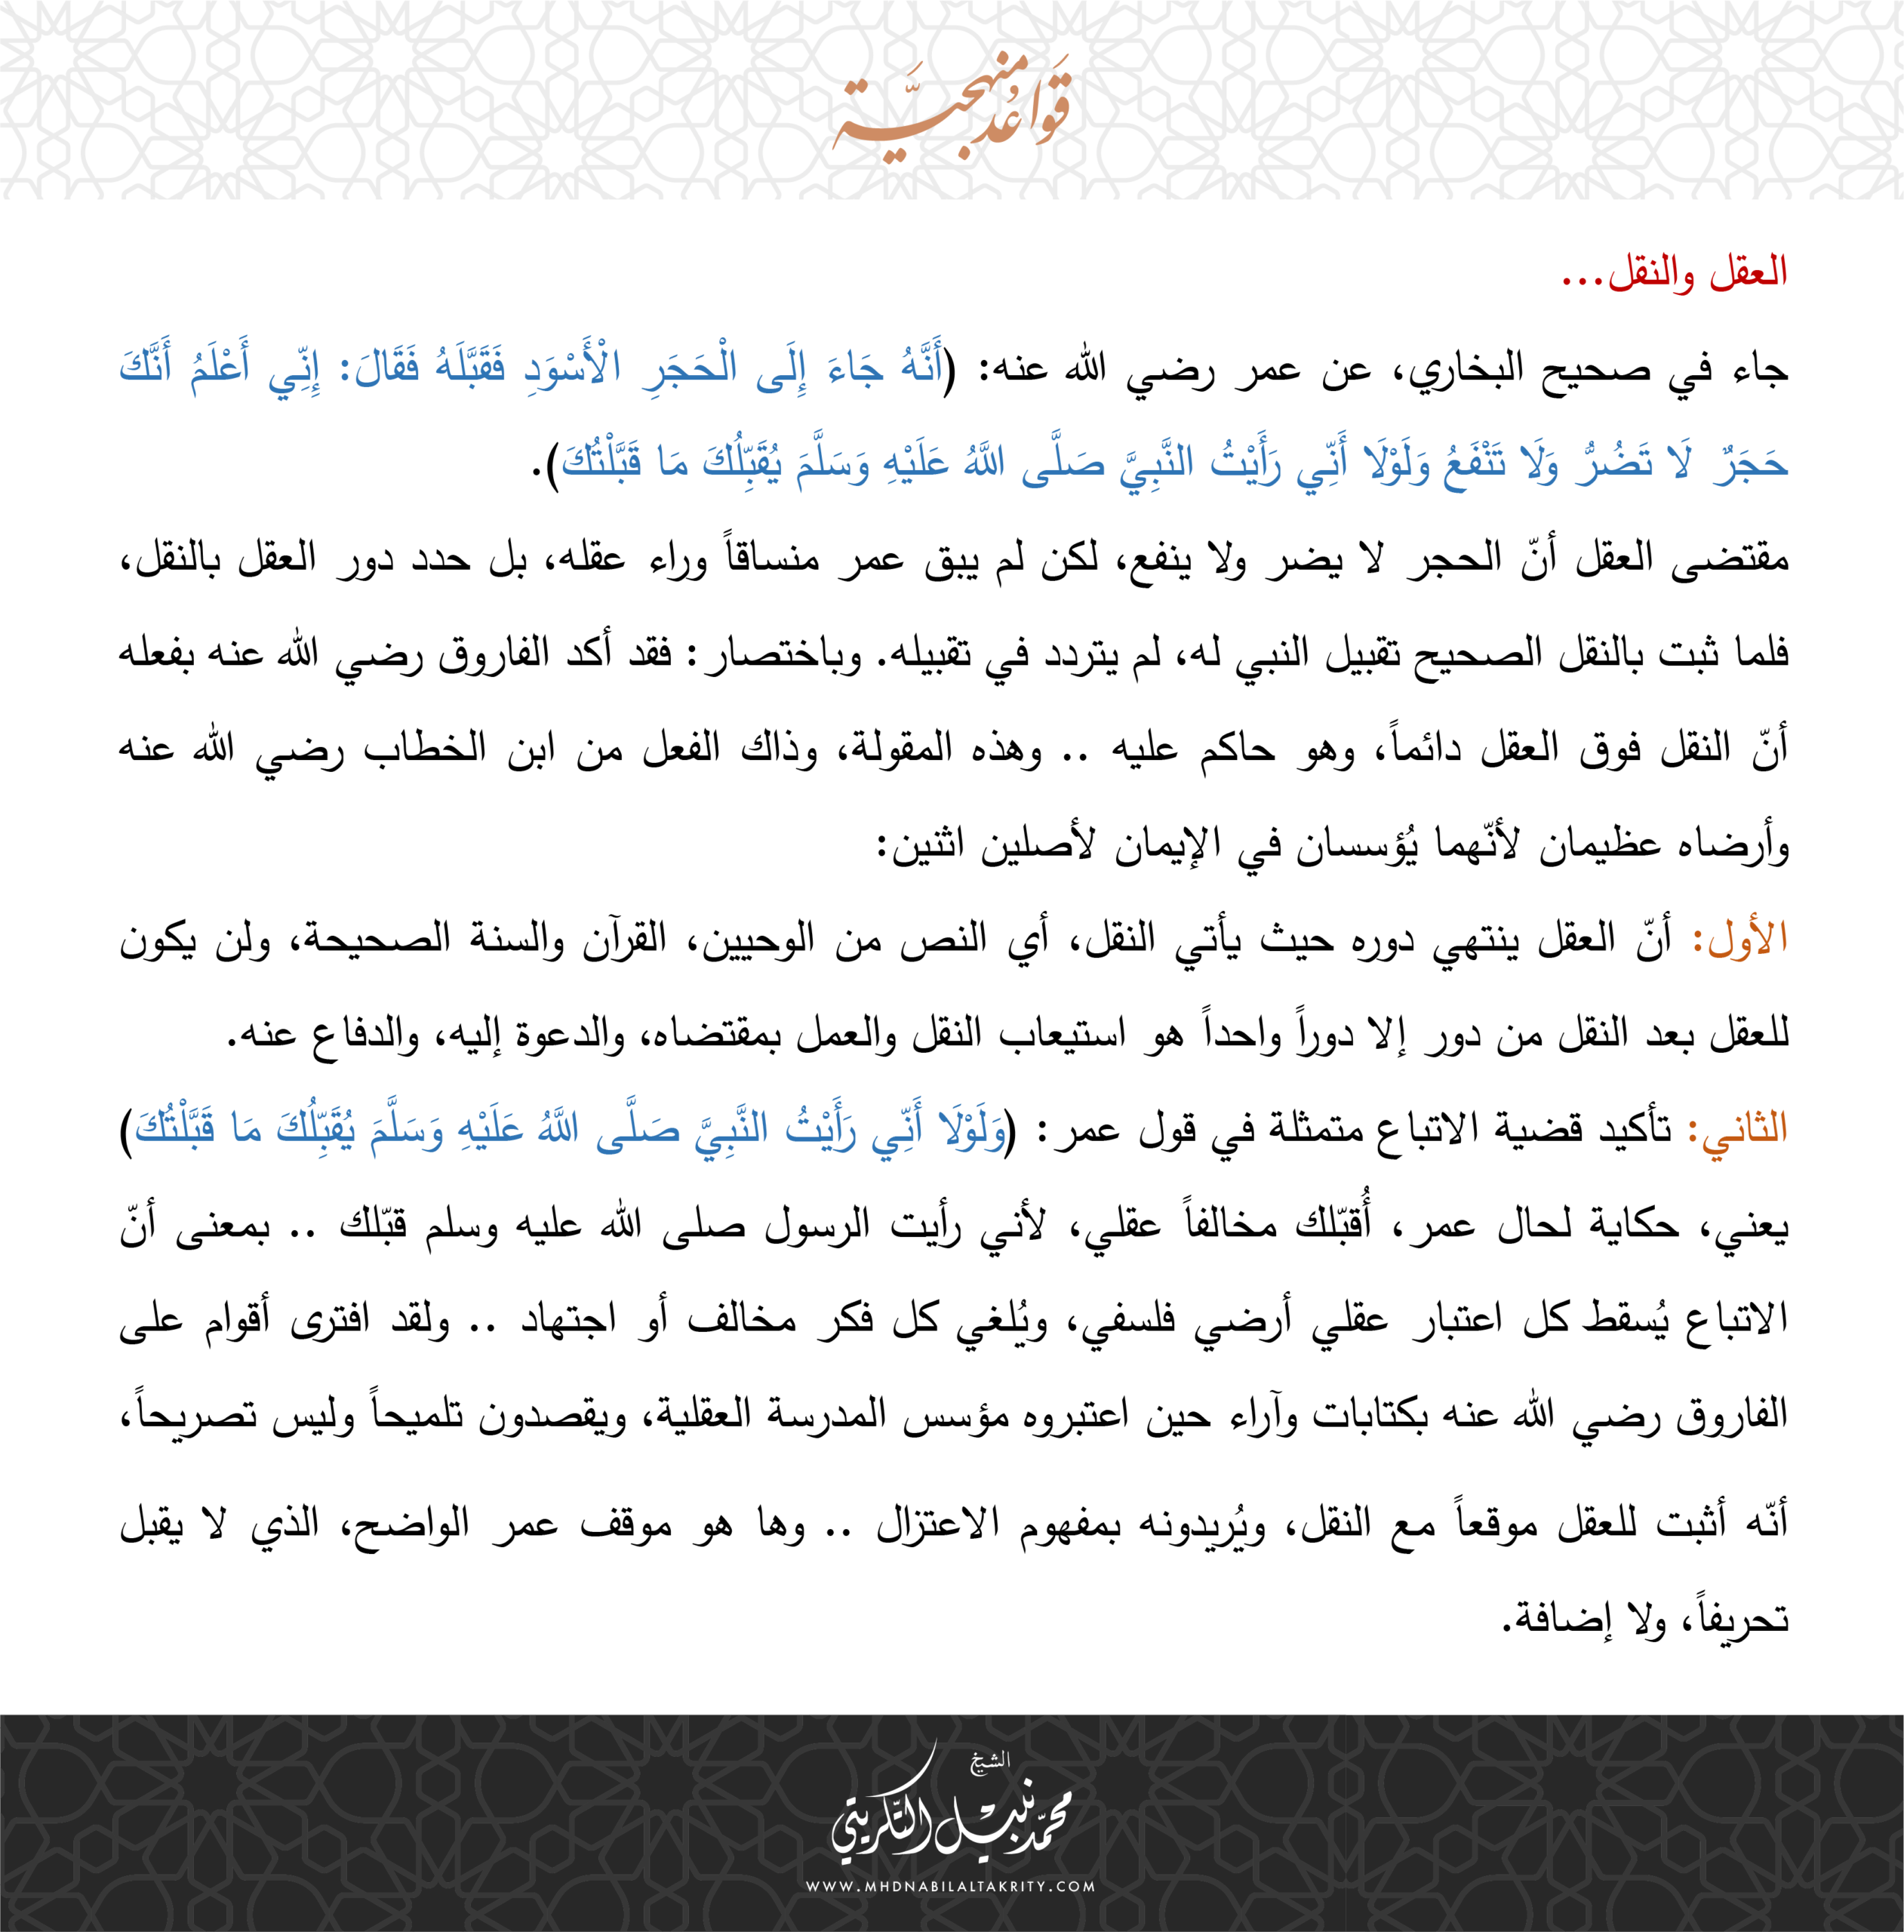 قَوَاعُد منهجيَّة
العقل والنقل...
جاء في صحيح البخاري، عن عمر رضي الله عنه: (أَنَّهُ جَاءَ إِلَى الْحَجَرِ الْأَسْوَدِ فَقَبَّلَهُ فَقَالَ: إِنِّي أَعْلَمُ أَنَّكَ
حَجَرٌ لَا تَضُرُّ وَلَا تَنْفَعُ وَلَوْلَا أَنِّي رَأَيْتُ النَّبِيَّ صَلَّى اللَّهُ عَلَيْهِ وَسَلَّمَ يُقَبِّلُكَ مَا قَبَّلْتُكَ).
مقتضى العقل أنّ الحجر لا يضر ولا ينفع، لكن لم يبق عمر منساقاً وراء عقله، بل حدد دور العقل بالنقل،
فلما ثبت بالنقل الصحيح تقبيل النبي له، لم يتردد في تقبيله. وباختصار: فقد أكد الفاروق رضي الله عنه بفعله
أنّ النقل فوق العقل دائماً، وهو حاكم عليه .. وهذه المقولة، وذاك الفعل من ابن الخطاب رضي الله عنه
وأرضاه عظيمان لأنّهما يُؤسسان في الإيمان لأصلين اثنين:
الأول: أنّ العقل ينتهي دوره حيث يأتي النقل، أي النص من الوحيين، القرآن والسنة الصحيحة، ولن يكون
للعقل بعد النقل من دور إلا دوراً واحداً هو استيعاب النقل والعمل بمقتضاه، والدعوة إليه، والدفاع عنه.
الثاني: تأكيد قضية الاتباع متمثلة في قول عمر: (وَلَوْلَا أَنِّي رَأَيْتُ النَّبِيَّ صَلَّى اللَّهُ عَلَيْهِ وَسَلَّمَ يُقَبِّلُكَ مَا قَبَّلْتُكَ)
يعني، حكاية لحال عمر، أُقبّلك مخالفاً عقلي، لأني رأيت الرسول صلى الله عليه وسلم قبّلك .. بمعنى أنّ
الاتباع يُسقط كل اعتبار عقلي أرضي فلسفي، ويُلغي كل فكر مخالف أو اجتهاد .. ولقد افترى أقوام على
الفاروق رضي الله عنه بكتابات وآراء حين اعتبروه مؤسس المدرسة العقلية، ويقصدون تلميحاً وليس تصريحاً،
أنّه أثبت للعقل موقعاً مع النقل، ويُريدونه بمفهوم الاعتزال .. وها هو موقف عمر الواضح، الذي لا يقبل
تحريفاً، ولا إضافة.
الشيخ
محمّد نبيل التّكريتي
WWW.MHDNABILALTAKRITY.COM